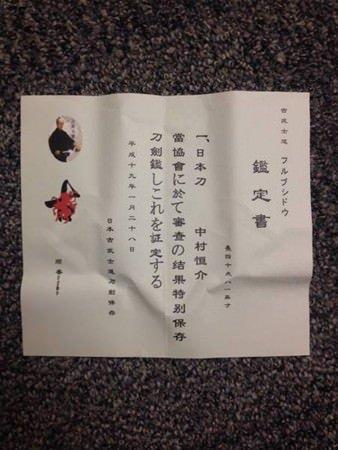 古武士道 フルブシドウ
鑑定書
長四十点八一五寸
一、日本刀 中村恒介
當協會に於て審査の結果特別保存
刀劍鑑しこれを証定する
平成十九年一月二十八日
日本古武士道刀劍保存